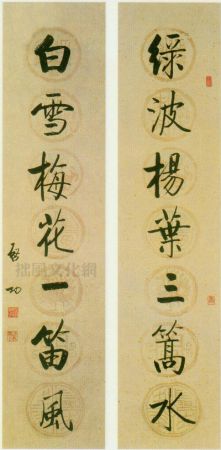 綠波楊葉三篙水
白雪梅花一笛風
啟功
拙風文化網